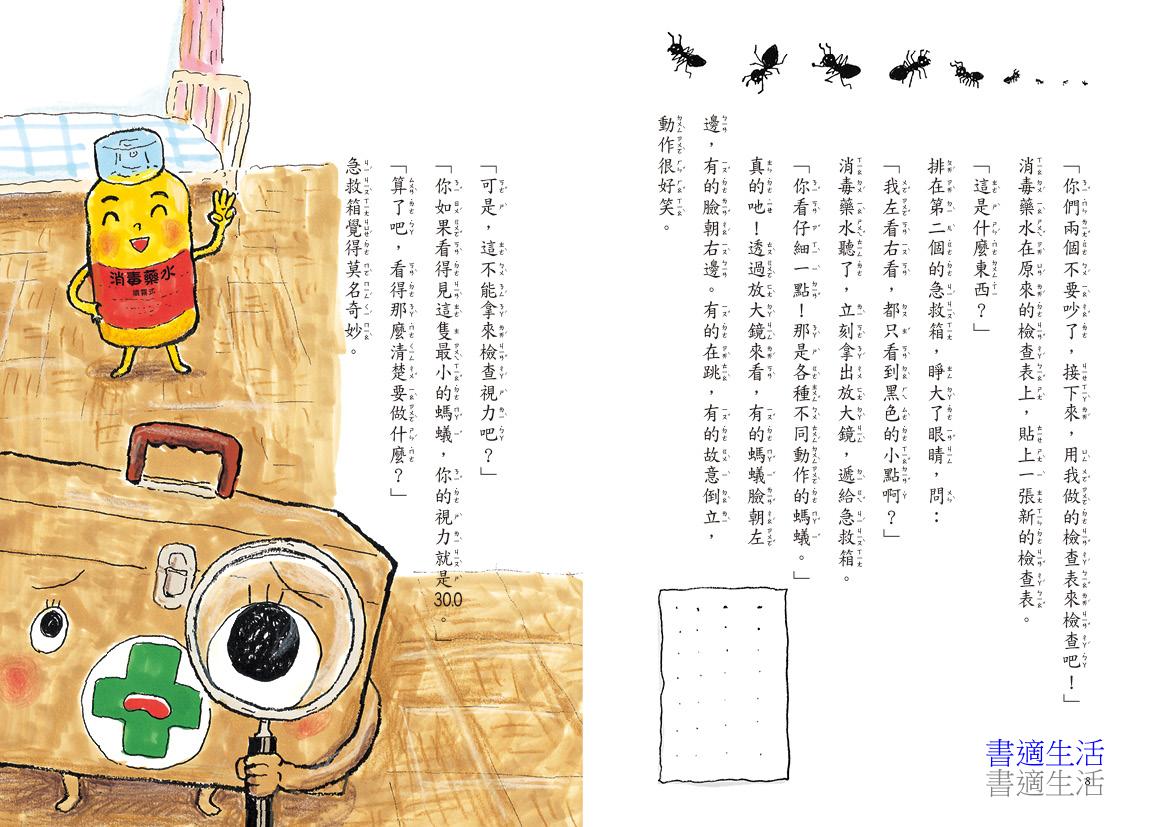 「你們兩個不要吵了，接下來，用我做的檢查表來檢查吧！」
消毒藥水在原來的檢查表上，貼上一張新的檢查表。
「這是什麼東西？」
排在第二個的急救箱，睜大了眼睛，問：
「我左看右看，都只看到黑色的小點啊？」
消毒藥水聽了，立刻拿出放大鏡，遞給急救箱。
「你看仔細一點！那是各種不同動作的螞蟻。」
真的吔！透過放大鏡來看，有的螞蟻臉朝左
邊，有的臉朝右邊。有的在跳，有的故意倒立，
動作很好笑。
「可是，這不能拿來檢查視力吧？」
「你如果看得見這隻最小的螞蟻，你的視力就是30.0。
「算了吧，看得那麼清楚要做什麼？」
急救箱覺得莫名奇妙。
消毒藥水
噴霧式
書適生活
書適生活
8